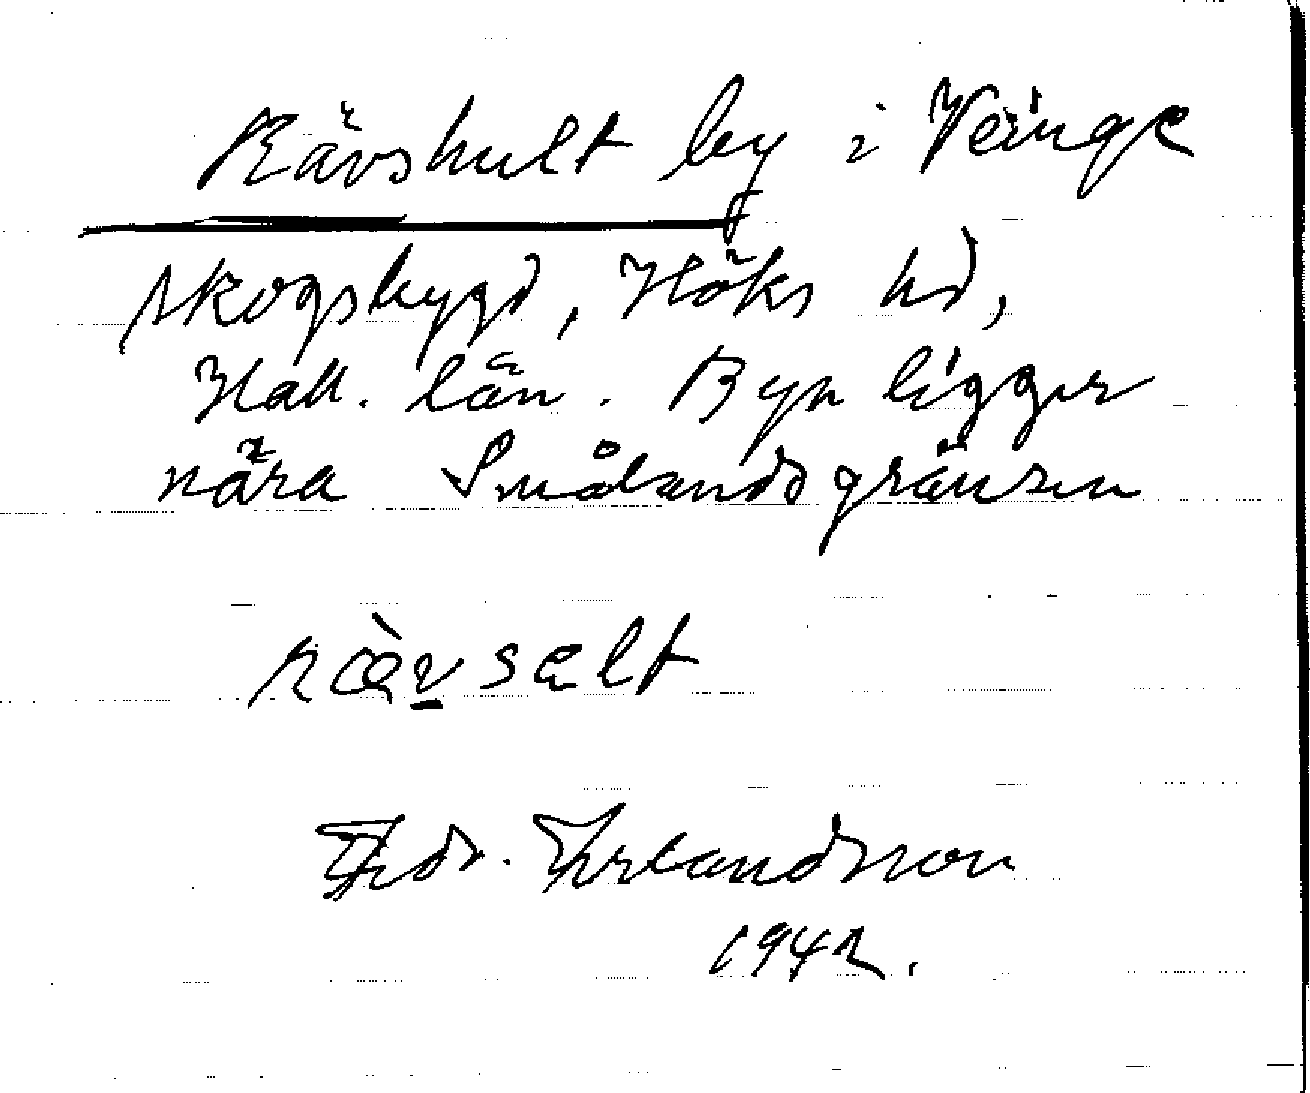 Rävshult by i Veinge
skogsbygd, Höks hd,
Hall. län. Byn ligger
nära Smålandsgränsen
ræ̀vsælt
Thdr. Erlandsson
1942.